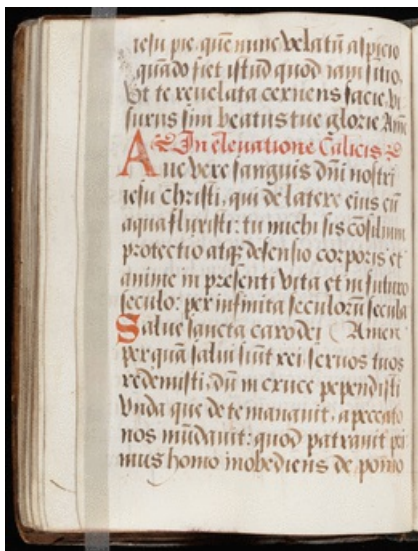 iesu pie, quē nunc velatū aspicio
quādo fiet istud quod iam sitio,
Vt te reuelata cernens facie vi
surus sim beatus tue glorie Amē
In elevatione Calicis
Aue vere sanguis dñi nostri
iesu christi, qui de latere eius cū
aqua fluxisti: tu michi sis cōsilium
protectio atqȝ defensio corporis et
anime in presenti vita et in futuro
seculo: per infinita seculorū secula
Salue sancta caro dei Amen
per quā salui sūnt rei: seruos tuos
redemisti, dū in cruce pependisti
Vnda que de te manauit, a peccato
nos mūdauit: quod patrauit pri
mus homo inobediens de pomo